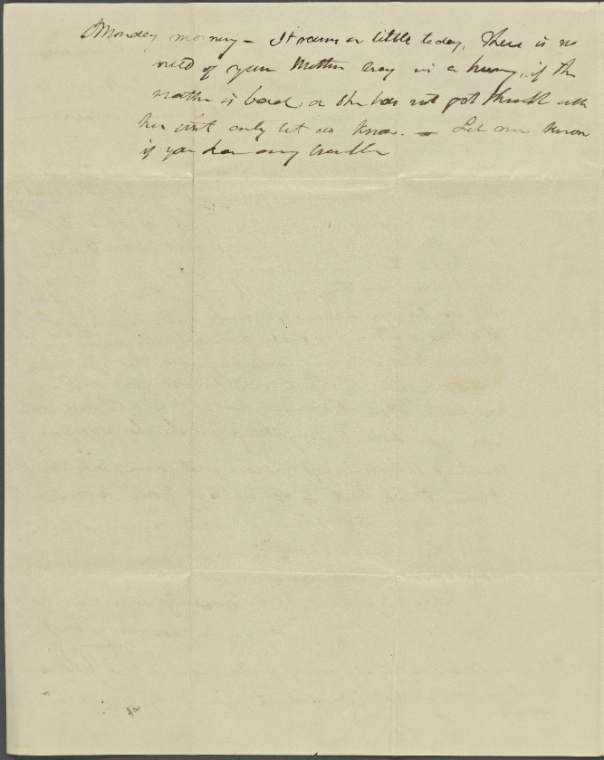 Monday morning – It rains a little today, There is no
need of your Mother being in a hurry, if the
weather is bad or she has not got through with
her visit only let us know. – Let me know
if you have any trouble